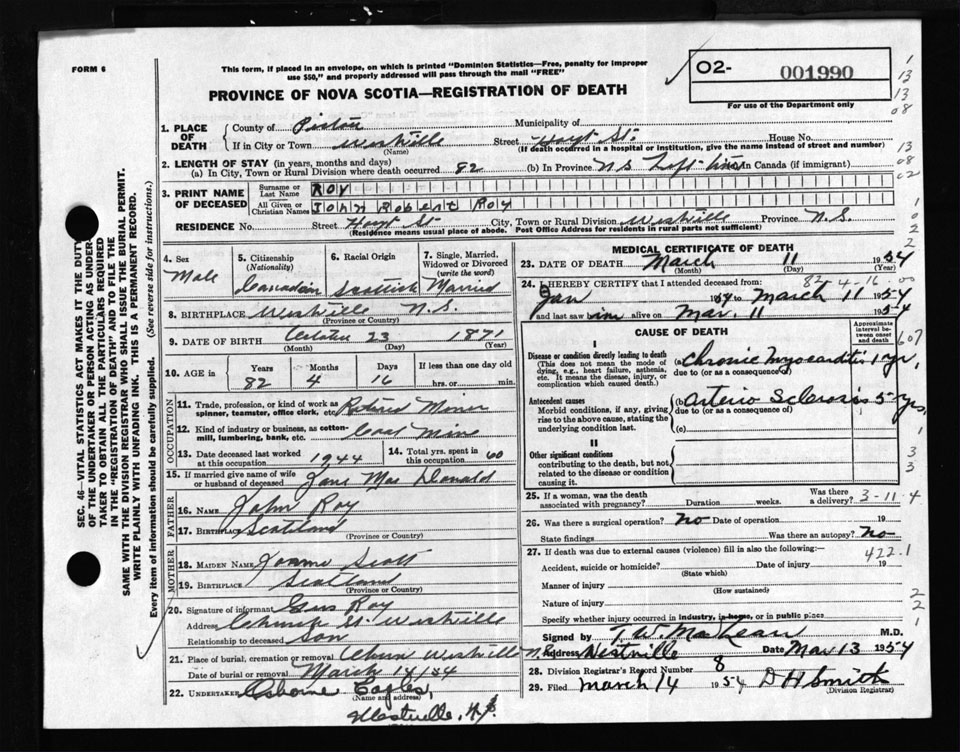 FORM 6
This form, if placed in an envelope, on which is printed "Dominion Statistics—Free, penalty for improper
use $50," and properly addressed will pass through the mail "FREE"
O2- 001990
For use of the Department only
PROVINCE OF NOVA SCOTIA—REGISTRATION OF DEATH
1. PLACE OF DEATH
County of Pictou Municipality of
If in City or Town Westville Street Hoyt St. House No.
(Name) (If death occurred in a hospital or institution, give the name instead of street and number)
2. LENGTH OF STAY (in years, months and days)
(a) In City, Town or Rural Division where death occurred 82 (b) In Province N.S. Life time In Canada (if immigrant)
3. PRINT NAME OF DECEASED
Surname or Last Name ROY
All Given or Christian Names John Robert Roy
RESIDENCE No. Street Hoyt St City, Town or Rural Division Westville Province N.S.
(Residence means usual place of abode. Post Office Address for residents in rural parts not sufficient)
4. Sex Male
5. Citizenship (Nationality) Canadian
6. Racial Origin Scottish
7. Single, Married, Widowed or Divorced (write the word) Married
8. BIRTHPLACE Westville N.S.
(Province or Country)
9. DATE OF BIRTH 23 1871
(Month) (Day) (Year)
10. AGE in Years 82 Months 4 Days 16 If less than one day old
hrs. or min.
OCCUPATION
11. Trade, profession, or kind of work as spinner, teamster, office clerk, etc. Retired Miner
12. Kind of industry or business, as cotton-mill, lumbering, bank, etc. Coal Mine
13. Date deceased last worked at this occupation 1944
14. Total yrs. spent in this occupation 60
15. If married give name of wife or husband of deceased Jane Mac Donald
FATHER
16. NAME John Roy
17. BIRTHPLACE Scotland
(Province or Country)
MOTHER
18. MAIDEN NAME Scott
19. BIRTHPLACE Scotland
(Province or Country)
20. Signature of informant Roy
Address Church St. Westville
Relationship to deceased Son
21. Place of burial, cremation or removal Westville N.S.
Date of burial or removal March 14/54
22. UNDERTAKER Osborne
(Name and address)
Westville, N.S.
MEDICAL CERTIFICATE OF DEATH
23. DATE OF DEATH March 11 1954
(Month) (Day) (Year)
82-4-16
24. I HEREBY CERTIFY that I attended deceased from:
Jan 1954 to March 11 1954
and last saw him alive on Mar. 11 1954
CAUSE OF DEATH
Approximate interval between cause and death
I
Disease or condition directly leading to death
(This does not mean the mode of dying, e.g., heart failure, asthenia, etc. It means the disease, injury, or complication which caused death.)
(a) Chronic Myocarditis 1 yr.
due to (or as a consequence of)
Antecedent causes
Morbid conditions, if any, giving rise to the above cause, stating the underlying condition last.
(b) Arterio Sclerosis 5 yrs.
due to (or as a consequence of)
(c)
II
Other significant conditions
contributing to the death, but not related to the disease or condition causing it.
25. If a woman, was the death associated with pregnancy? Duration weeks. Was there a delivery?
3-11-4
26. Was there a surgical operation? No Date of operation 19
State findings Was there an autopsy? No
27. If death was due to external causes (violence) fill in also the following:—
422.1
Accident, suicide or homicide? Date of injury 19
(State which)
Manner of injury
(How sustained)
Nature of injury
Specify whether injury occurred in industry, in home, or in public place
Signed by T. W. MacLean M.D.
Address Westville Date Mar 13 1954
28. Division Registrar's Record Number 8
29. Filed March 14 1954 D H Smith
(Division Registrar)
SEC. 46—VITAL STATISTICS ACT MAKES IT THE DUTY
OF THE UNDERTAKER OR PERSON ACTING AS UNDER-
TAKER TO OBTAIN ALL THE PARTICULARS REQUIRED
IN THE "REGISTRATION OF DEATH" AND TO FILE THE
SAME WITH THE DIVISION REGISTRAR WHO SHALL ISSUE THE BURIAL PERMIT.
WRITE PLAINLY WITH UNFADING INK. THIS IS A PERMANENT RECORD.
Every item of information should be carefully supplied. (See reverse side for instructions.)
1
13
13
08
13
08
02
1
0
2
2
00
607
1
3
3
2
2
1